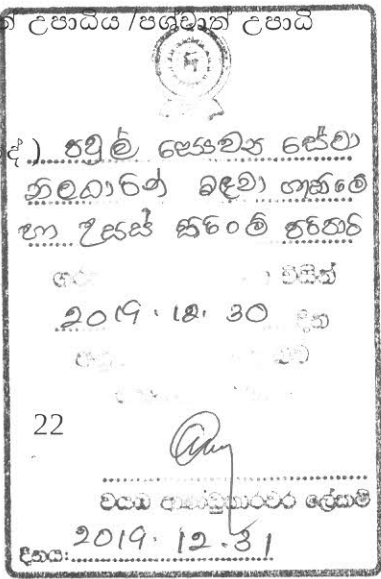 උපාධිය /පශ්චාත් උපාධි
පවුල් සෞඛ්‍ය සේවා
නිලධාරින් බඳවා ගැනීමේ
හා උසස් කිරීම් පරිපාටි
විසින්
2019. 12. 30 දින
22
වයඹ ආණ්ඩුකාරවර ලේකම්
දිනය: 2019. 12. 31